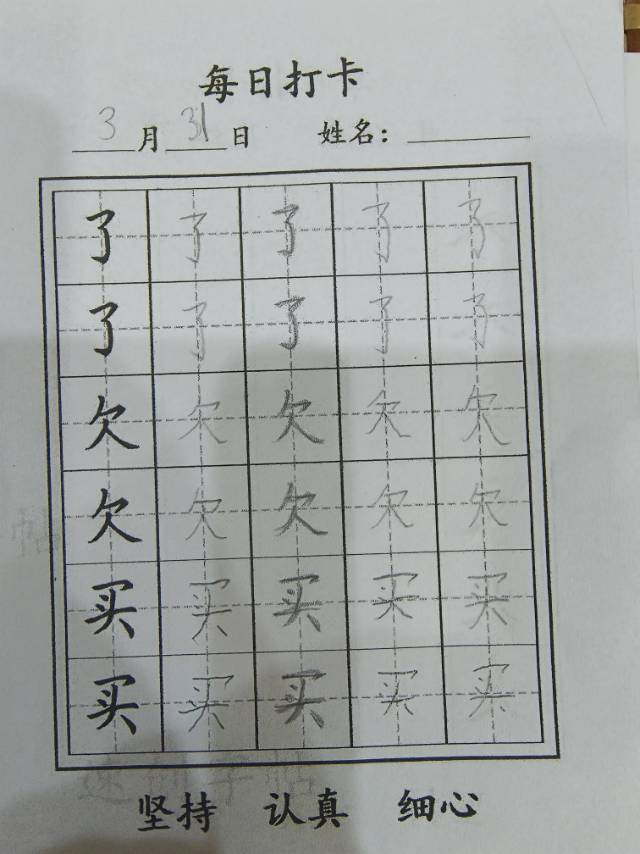 每日打卡
3月31日 姓名：
了 了 了 了 了
了 了 了 了 了
欠 欠 欠 欠 欠
欠 欠 欠 欠 欠
买 买 买 买 买
买 买 买 买 买
坚持 认真 细心